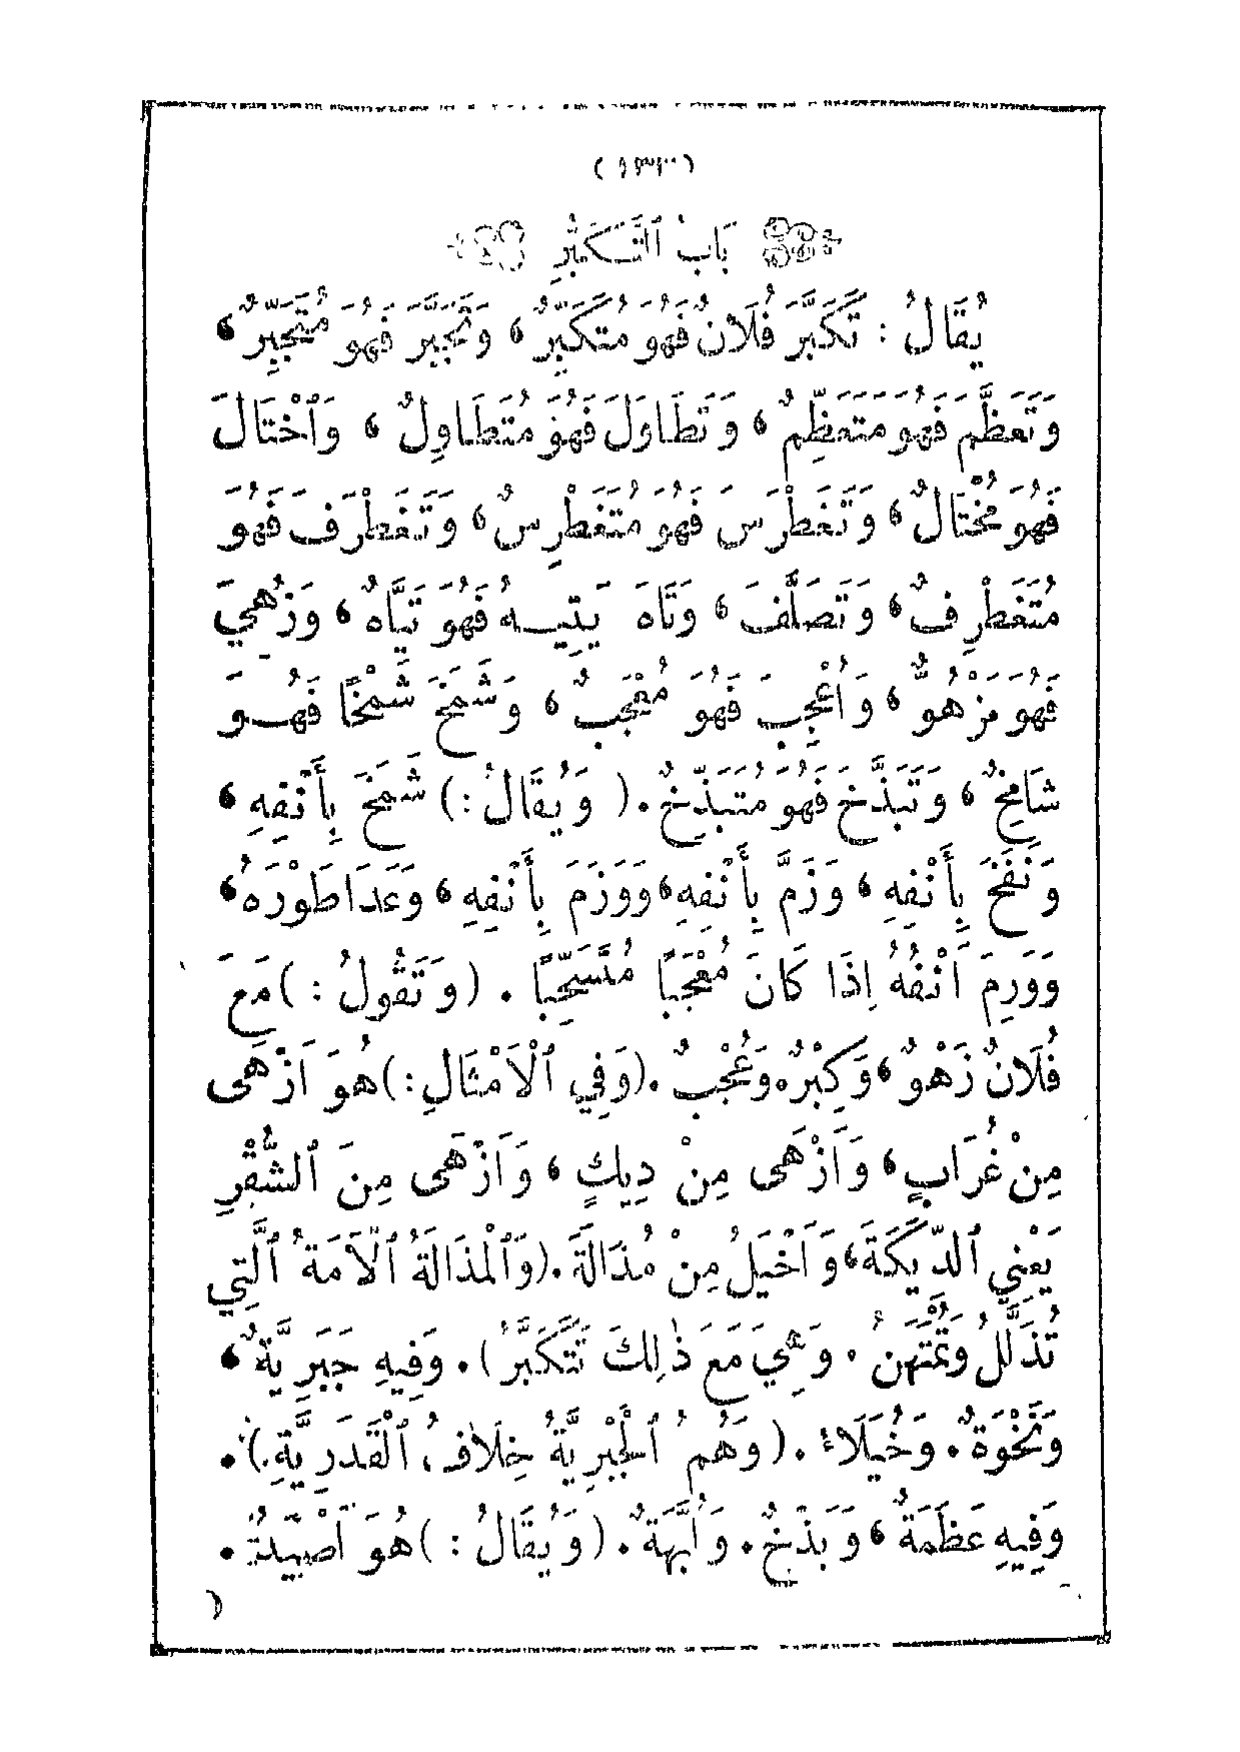 بَابُ ٱلتَّكَبُّرِ
يُقَالُ : تَكَبَّرَ فُلَانٌ فَهُوَ مُتَكَبِّرٌ ، وَتَجَبَّرَ فَهُوَ مُتَجَبِّرٌ ،
وَتَعَظَّمَ فَهُوَ مُتَعَظِّمٌ ، وَتَطَاوَلَ فَهُوَ مُتَطَاوِلٌ ، وَٱخْتَالَ
فَهُوَ مُخْتَالٌ ، وَتَغَطْرَسَ فَهُوَ مُتَغَطْرِسٌ ، وَتَغَطْرَفَ فَهُوَ
مُتَغَطْرِفٌ ، وَتَصَلَّفَ ، وَتَاهَ يَتِيهُ فَهُوَ تَيَّاهٌ ، وَزُهِيَ
فَهُوَ مَزْهُوٌّ ، وَأُعْجِبَ فَهُوَ مُعْجَبٌ ، وَشَمَخَ شَمْخًا فَهُوَ
شَامِخٌ ، وَتَبَذَّخَ فَهُوَ مُتَبَذِّخٌ . ( وَيُقَالُ : ) شَمَخَ بِأَنْفِهِ ،
وَنَفَخَ بِأَنْفِهِ ، وَزَمَّ بِأَنْفِهِ ، وَوَزَمَ بِأَنْفِهِ ، وَعَدَا طَوْرَهُ ،
وَوَرِمَ اَنْفُهُ اِذَا كَانَ مُعْجَبًا مُتَسَحِّبًا . ( وَتَقُولُ : ) مَعَ
فُلَانٌ زَهْوٌ ، وَكِبْرٌ . وَعُجْبٌ . (وَفِي ٱلْاَمْثَالِ : ) هُوَ اَزْهَى
مِنْ غُرَابٍ ، وَاَزْهَى مِنْ دِيكٍ ، وَاَزْهَى مِنَ ٱلشُّقْرِ
يَعْنِي ٱلدِّيَكَةَ ، وَاَخْيَلُ مِنْ مُذَالَةَ . (وَٱلْمُذَالَةُ ٱلْاَمَةُ ٱلَّتِي
تُذَلَّلُ وَتُمْتَهَنُ . وَهِيَ مَعَ ذٰلِكَ تَتَكَبَّرُ ) . وَفِيهِ جَبَرِيَّةٌ ،
وَنَخْوَةٌ . وَخُيَلَاءُ . ( وَهُمُ ٱلْجَبْرِيَّةُ خِلَافُ ٱلْقَدَرِيَّةِ ) .
وَفِيهِ عَظَمَةٌ ، وَبَذْخٌ . وَاُبَّهَةٌ . ( وَيُقَالُ : ) هُوَ اَصْيَدُ .